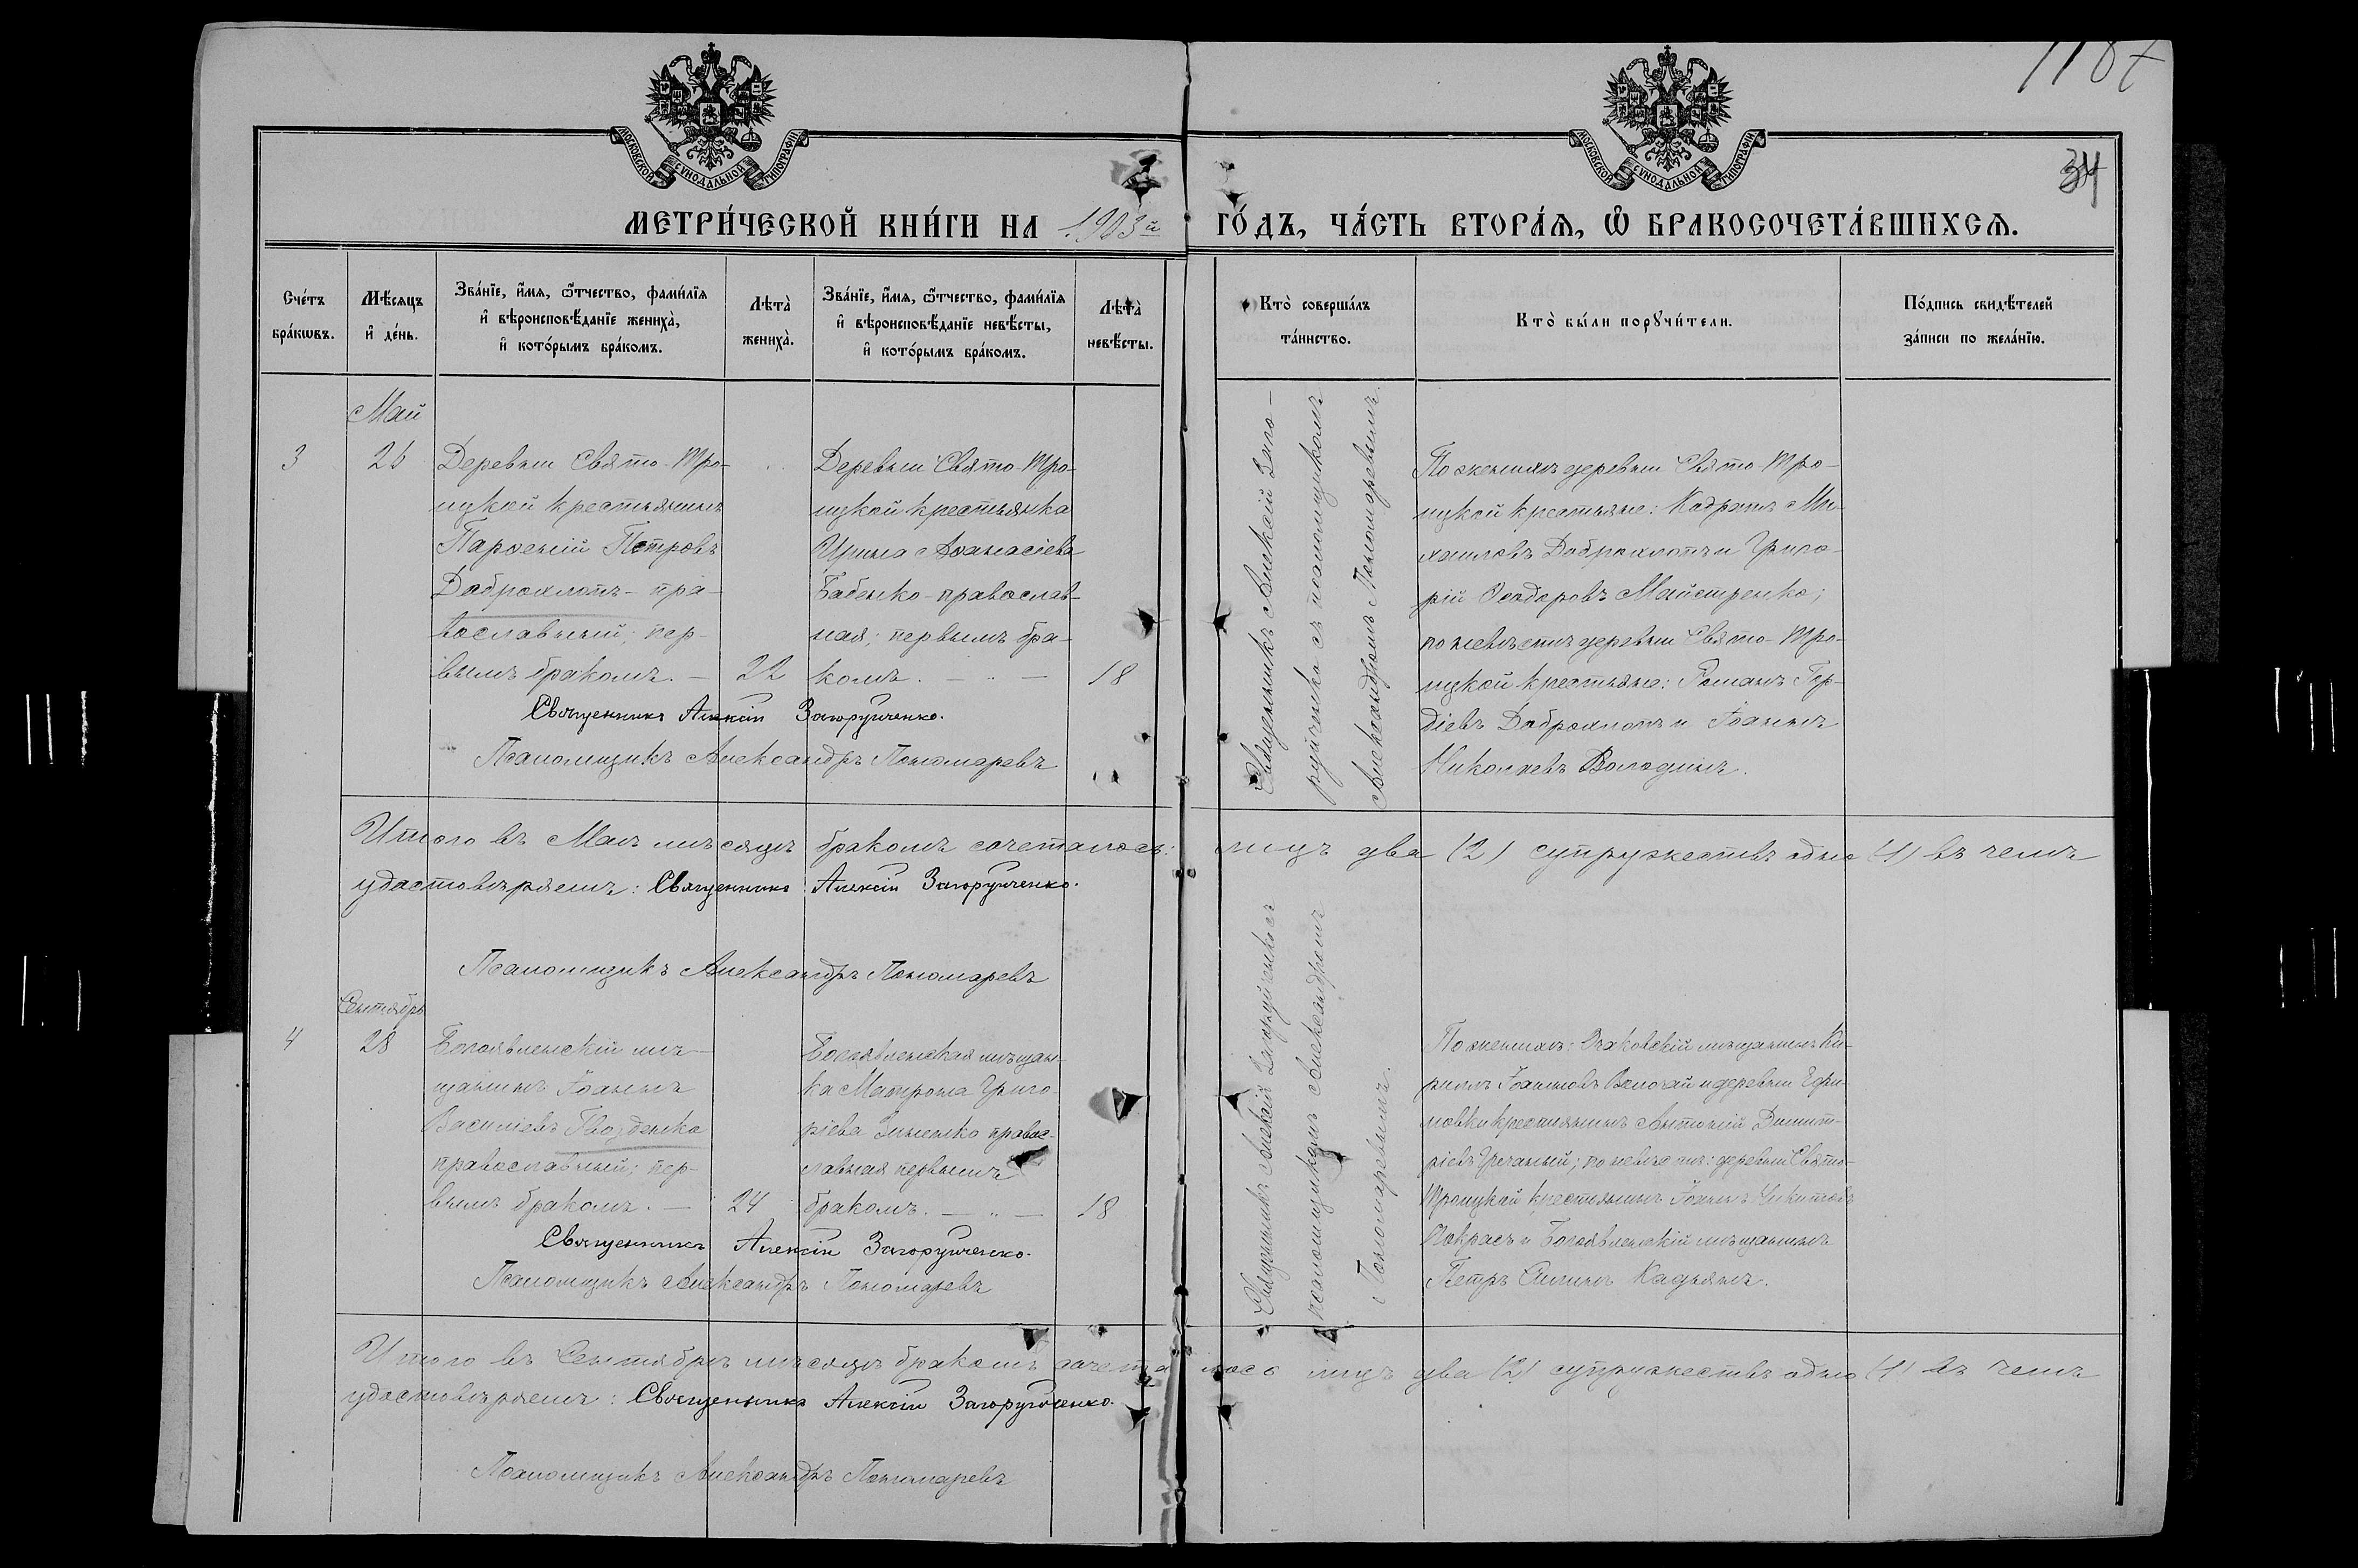 1187
34
МОСКОВСКОЙ СѴНОДАЛЬНОЙ ТИПОГРАФІИ
МОСКОВСКОЙ СѴНОДАЛЬНОЙ ТИПОГРАФІИ
МЕТРИ́ЧЕСКОЙ КНИ́ГИ НА 1903й ГО́ДЪ, ЧА́СТЬ ВТОРА́Ѧ, Ѽ БРАКОСОЧЕТА́ВШИХСѦ.
Сче́тъ
бра́кѡвъ.
Мѣ́сѧцъ
и҆ де́нь.
Зва́нїе, и҆́мѧ, ѻ҆́тчество, фамі́лїѧ
и҆ вѣроисповѣ́данїе жениха̀,
и҆ кото́рымъ бра́комъ.
Лѣ́та̀
жениха̀.
Зва́нїе, и҆́мѧ, ѻ҆́тчество, фамі́лїѧ
и҆ вѣроисповѣ́данїе невѣ́сты,
и҆ кото́рымъ бра́комъ.
Лѣ́та̀
невѣ́сты.
Кто̀ соверша́лъ
та́инство.
Кто̀ бы́ли порꙋчи́тели.
По́дпись свидѣ́телей
за́писи по жела́нїю.
Май
3
26
Деревни Свято-Тро-
ицкой крестьянинъ
Парѳеній Петровъ
Доброхлопъ - пра-
вославный; пер-
вымъ бракомъ. -
22
Деревни Свято-Тро-
ицкой крестьянка
Ирина Аѳанасіева
Бабенко - православ-
ная; первымъ бра-
комъ. - „ -
18
Священникъ Алексій Заго-
руйченко съ псаломщикомъ
Александромъ Пономаревымъ.
По женихѣ деревни Свято-Тро-
ицкой крестьяне: Кодратъ Ми-
хаиловъ Доброхлопъ и Григо-
рій Ѳеодоровъ Майстренко;
по невѣстѣ деревни Свято-Тро-
ицкой крестьяне: Романъ Гор-
діевъ Доброхлопъ и Іоаннъ
Николаевъ Володинъ.
Священникъ Алексій Загоруйченко.
Псаломщикъ Александръ Пономаревъ
Итого въ Маѣ мѣсяцѣ бракомъ сочеталось: лицъ два (2) супружествъ одно (1) въ чемъ
удостовѣряемъ: Священникъ Алексій Загоруйченко.
Псаломщикъ Александръ Пономаревъ
Сентябрь
4
28
Богоявленскій мѣ-
щанинъ Іоаннъ
Василіевъ Гвозденко
православный; пер-
вымъ бракомъ. -
24
Богоявленская мѣщан-
ка Матрона Григо-
ріева Зиненко правос-
лавная первымъ
бракомъ. - „ -
18
Священникъ Алексій Загоруйченко съ
псаломщикомъ Александромъ
Пономаревымъ.
По женихѣ: Очаковскій мѣщанинъ Ки-
риллъ Іоанновъ и деревни Ефи-
мовки крестьянинъ Антоній Димит-
ріевъ Гречаный; по невѣстѣ: деревни Свято-
Троицкой крестьянинъ Іоаннъ Никитовъ
Покрасъ и Богоявленскій мѣщанинъ
Петръ Кадыянъ.
Священникъ Алексій Загоруйченко.
Псаломщикъ Александръ Пономаревъ
Итого въ Сентябрѣ мѣсяцѣ бракомъ сочеталось лицъ два (2) супружествъ одно (1) въ чемъ
удостовѣряемъ: Священникъ Алексій Загоруйченко.
Псаломщикъ Александръ Пономаревъ